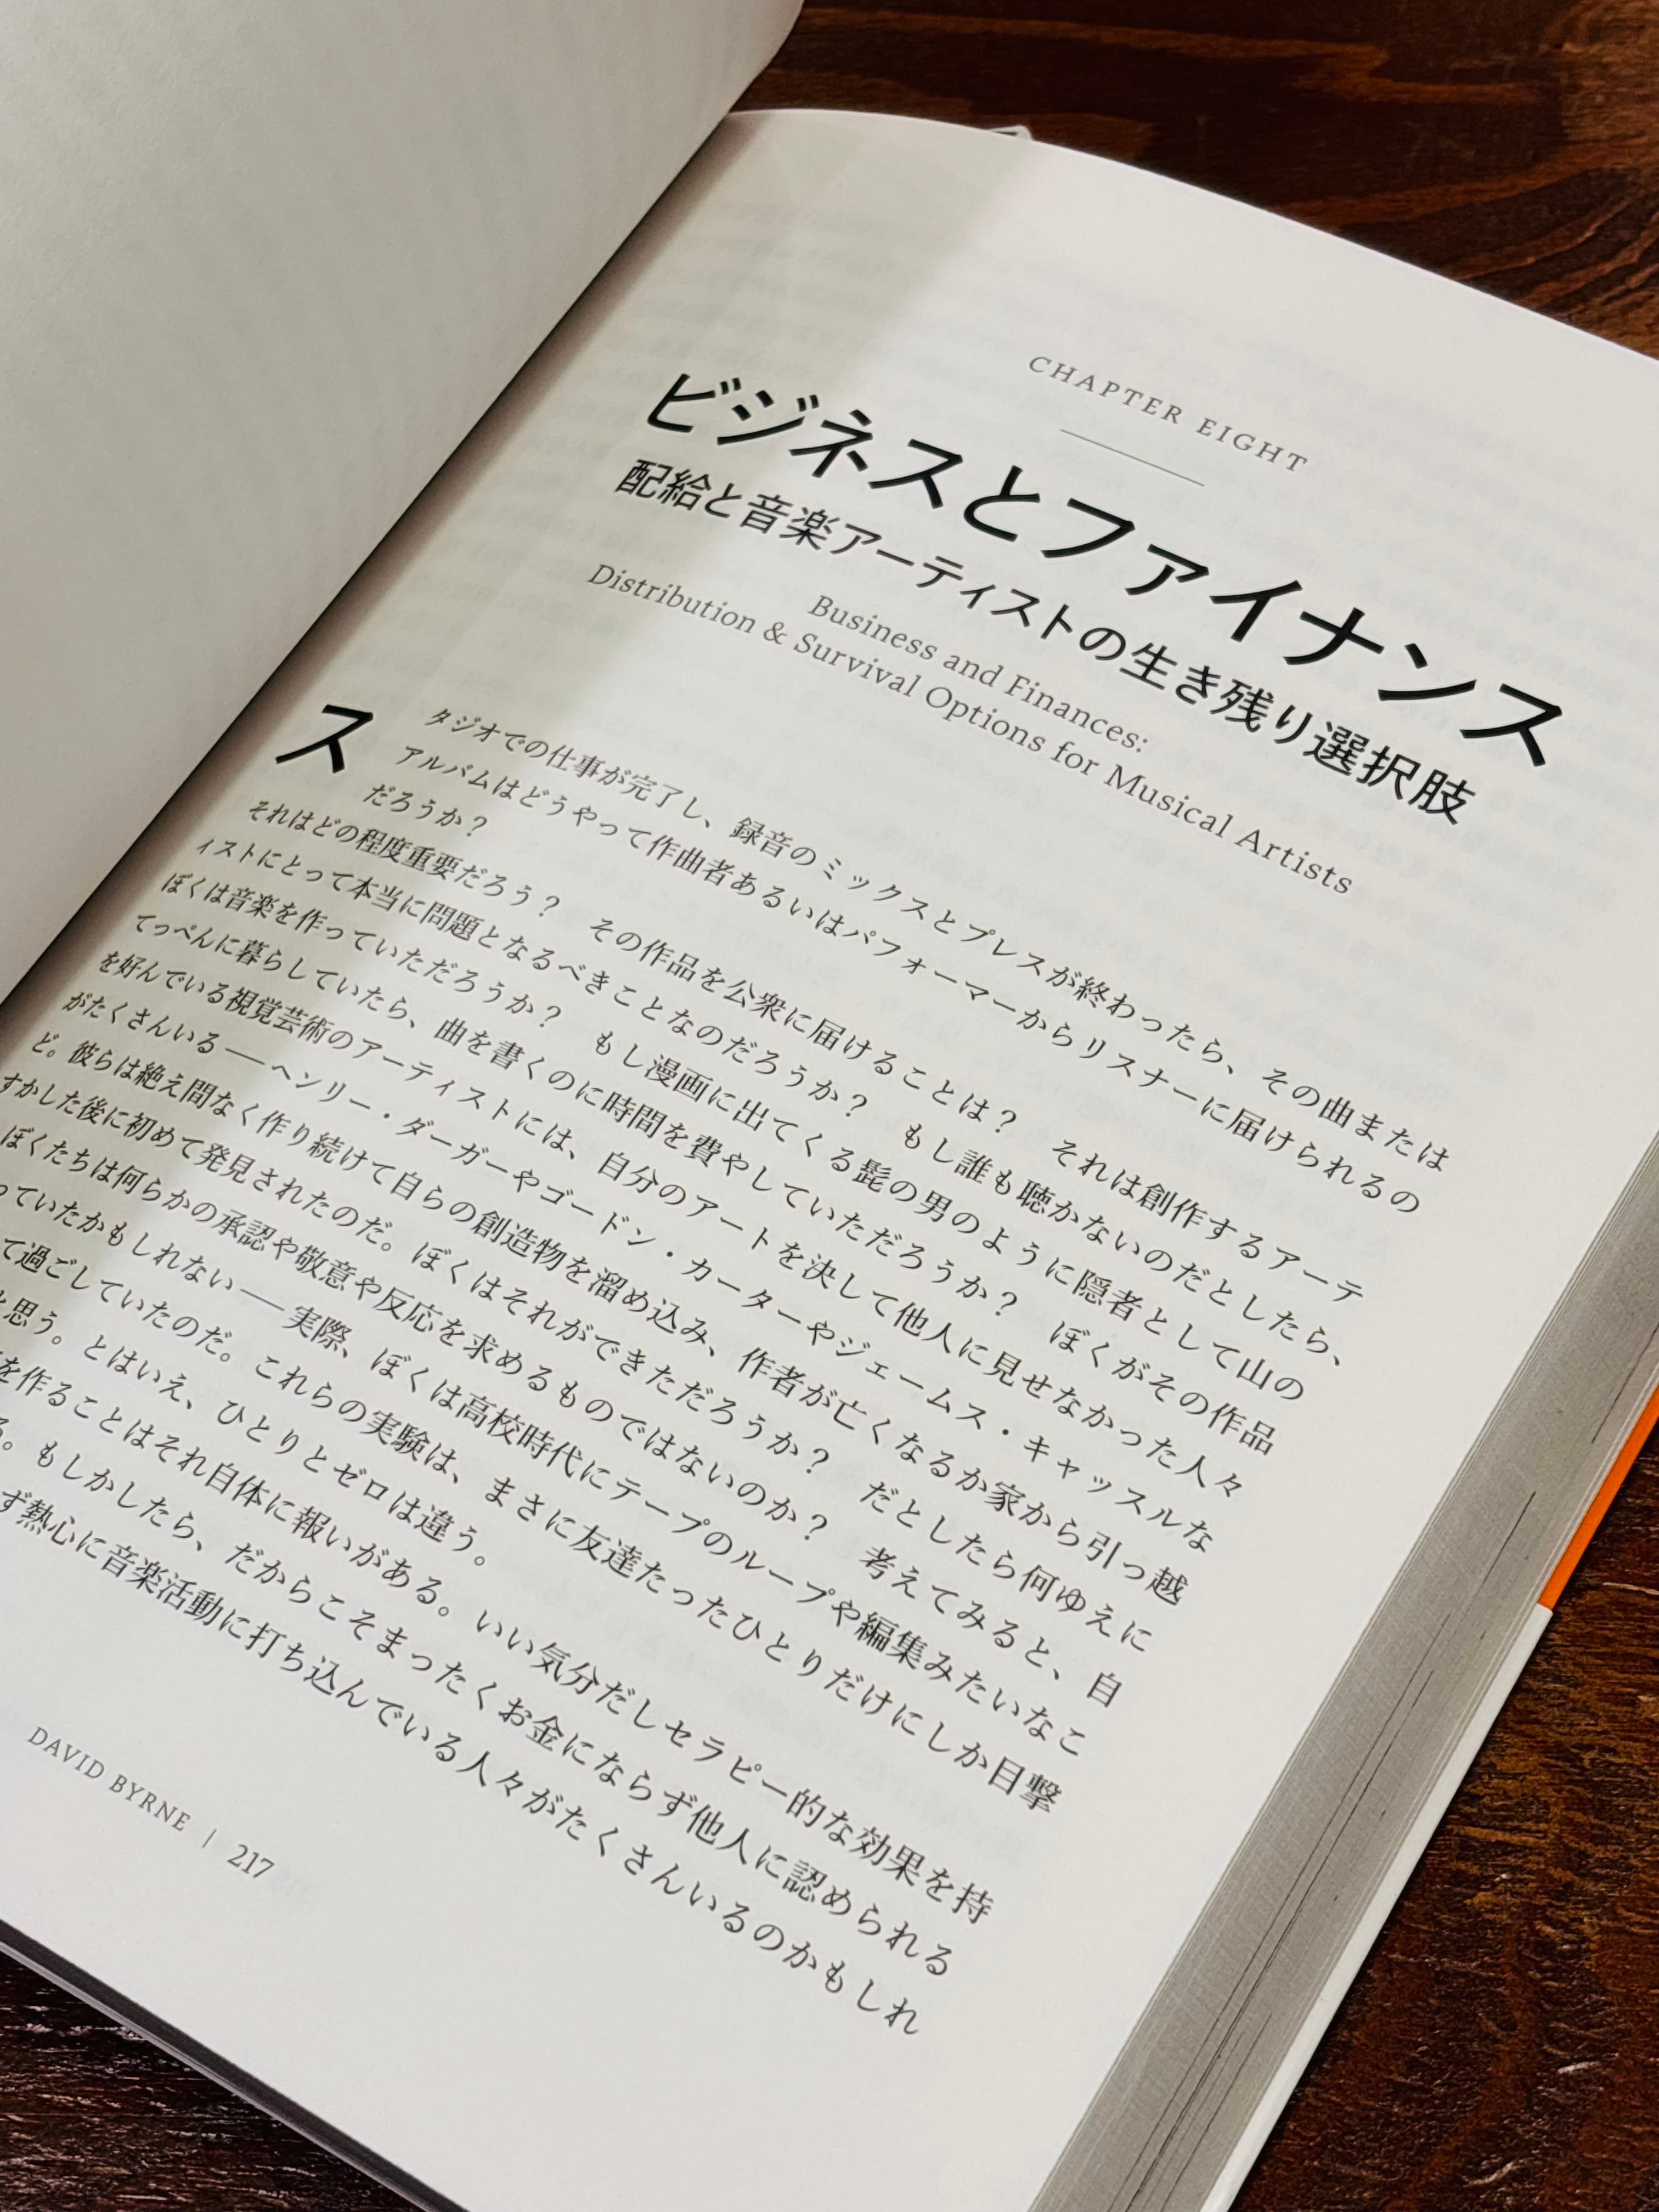 CHAPTER EIGHT
ビジネスとファイナンス
配給と音楽アーティストの生き残り選択肢
Business and Finances:
Distribution & Survival Options for Musical Artists
スタジオでの仕事が完了し、録音のミックスとプレスが終わったら、その曲または
アルバムはどうやって作曲者あるいはパフォーマーからリスナーに届けられるの
だろうか？
それはどの程度重要だろう？　その作品を公衆に届けることは？　それは創作するアーテ
ィストにとって本当に問題となるべきことなのだろうか？　もし誰も聴かないのだとしたら、
ぼくは音楽を作っていただろうか？　もし漫画に出てくる髭の男のように隠者として山の
てっぺんに暮らしていたら、曲を書くのに時間を費やしていただろうか？　ぼくがその作品
を好んでいる視覚芸術のアーティストには、自分のアートを決して他人に見せなかった人々
がたくさんいる──ヘンリー・ダーガーやゴードン・カーターやジェームス・キャッスルな
ど。彼らは絶え間なく作り続けて自らの創造物を溜め込み、作者が亡くなるか家から引っ越
すかした後に初めて発見されたのだ。ぼくはそれができただろうか？　だとしたら何ゆえに
ぼくたちは何らかの承認や敬意や反応を求めるものではないのか？　考えてみると、自
っていたかもしれない──実際、ぼくは高校時代にテープのループや編集みたいなこ
て過ごしていたのだ。これらの実験は、まさに友達たったひとりだけにしか目撃
思う。とはいえ、ひとりとゼロは違う。
を作ることはそれ自体に報いがある。いい気分だしセラピー的な効果を持
る。もしかしたら、だからこそまったくお金にならず他人に認められる
ず熱心に音楽活動に打ち込んでいる人々がたくさんいるのかもしれ
DAVID BYRNE | 217